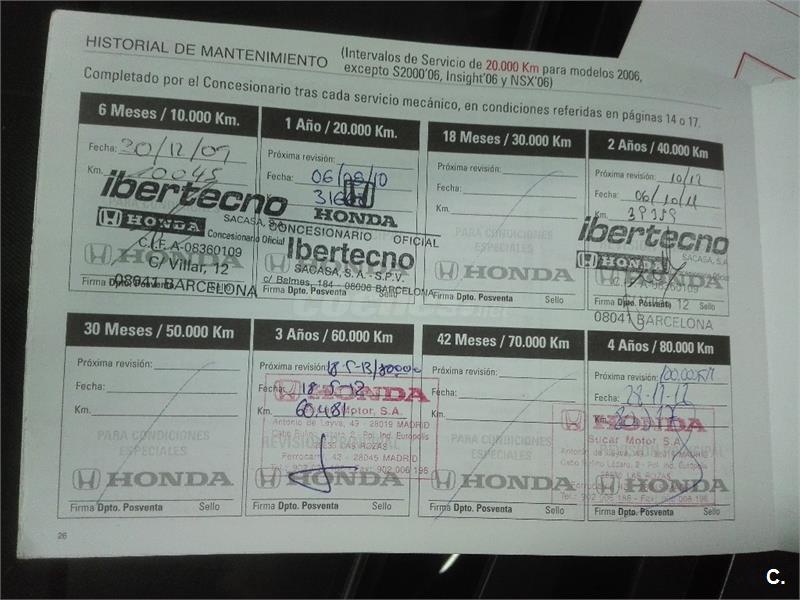 HISTORIAL DE MANTENIMIENTO
(Intervalos de Servicio de 20.000 Km para modelos 2006,
excepto S2000'06, Insight'06 y NSX'06)
Completado por el Concesionario tras cada servicio mecánico, en condiciones referidas en páginas 14 o 17.
6 Meses / 10.000 Km.
Fecha: 30/12/09
Km. 20045
ibertecno
HONDA
SACASA, S.A.
Concesionario Oficial
C.I.F. A-08360109
C/ Villar, 12
08041 BARCELONA
HONDA
Firma Dpto. Posventa
Sello
1 Año / 20.000 Km.
Próxima revisión:
Fecha:
Km.
HONDA
CONCESIONARIO OFICIAL
Ibertecno
SACASA, S.A. - S.P.V.
c/ Balmes, 184 - 08006 BARCELONA
Firma Dpto. Posventa
Sello
18 Meses / 30.000 Km
Próxima revisión:
Fecha:
Km.
PARA CONDICIONES
ESPECIALES
HONDA
Firma Dpto. Posventa
Sello
2 Años / 40.000 Km
Próxima revisión: 10/12
Fecha: 06/10/11
Km.
ibertecno
HONDA
SACASA, S.A.
A-08360109
12
08041 BARCELONA
Firma Dpto. Posventa
Sello
30 Meses / 50.000 Km
Próxima revisión:
Fecha:
Km.
PARA CONDICIONES
ESPECIALES
HONDA
Firma Dpto. Posventa
Sello
3 Años / 60.000 Km
Próxima revisión: 18-5-13/80000
Fecha: 18-5-12
Km. 60.481
HONDA
Motor, S.A.
Antonio de Leyva, 49 - 28019 MADRID
Pol. Ind. Európolis
LAS ROZAS
Ferrocarril, 42 - 28045 MADRID
Fax: 902 006 196
HONDA
Firma Dpto. Posventa
Sello
42 Meses / 70.000 Km
Próxima revisión:
Fecha:
Km.
PARA CONDICIONES
ESPECIALES
HONDA
Firma Dpto. Posventa
Sello
4 Años / 80.000 Km
Próxima revisión: 100.000 KM
Fecha:
Km.
HONDA
Sucar Motor, S.A.
Antonio de Leyva, 49 - 28019 MADRID
Cabo Rufino Lázaro, 2 - Pol. Ind. Európolis
28230 LAS ROZAS
HONDA
Tel.: 902 006 186 - Fax: 902 006 196
Firma Dpto. Posventa
Sello
26
C.